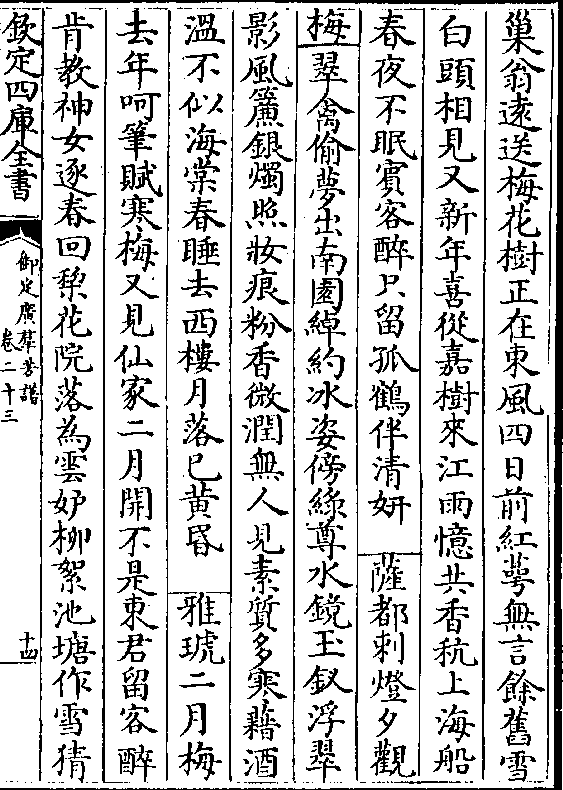 巢翁逺送梅花樹正在東風四日前紅蕚無言餘舊雪
白頭相見又新年喜從嘉樹來江雨憶共香秔上海船
春夜不眠賓客醉只留孤鶴伴清妍　薩都剌燈夕觀
梅翠禽偷夢出南園綽約冰姿傍綠尊水鏡玉釵浮翠
影風簾銀燭照妝痕粉香微潤無人見素質多寒藉酒
溫不似海棠春睡去西樓月落已黄昏　雅琥二月梅
去年呵筆賦寒梅又見仙家二月開不是東君留客醉
肯教神女逐春回棃花院落為雲妒栁絮池塘作雪猜
欽定四庫全書
御定廣羣芳譜
卷二十三
十四